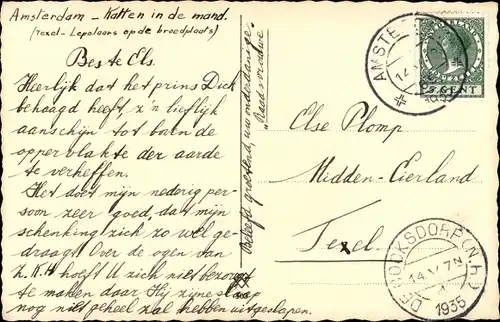 Amsterdam - Katten in de mand.
(Texel - Lepelaars op de broedplaats)
Beste Els.
Heerlijk dat het prins Dick
behaagd heeft, z'n lieflijk
aanschijn tot boven de
oppervlakte der aarde
te verheffen.
Het doet mijn nederig per-
soon zeer goed, dat mijn
schenking zich zo wel ge-
draagt. Over de ogen van
Z.K.H hoeft U zich niet bezorgd
te maken daar Hij zijne slaap
nog niet geheel zal hebben uitgeslapen.
Beleefd groetend, uw onderdanige
"Raadsvrouwe"
Else Plomp
Midden-Eierland
Texel
AMSTE
5 CENT
DE COCKSDORP (N.H.)
14 V 7 N
1935